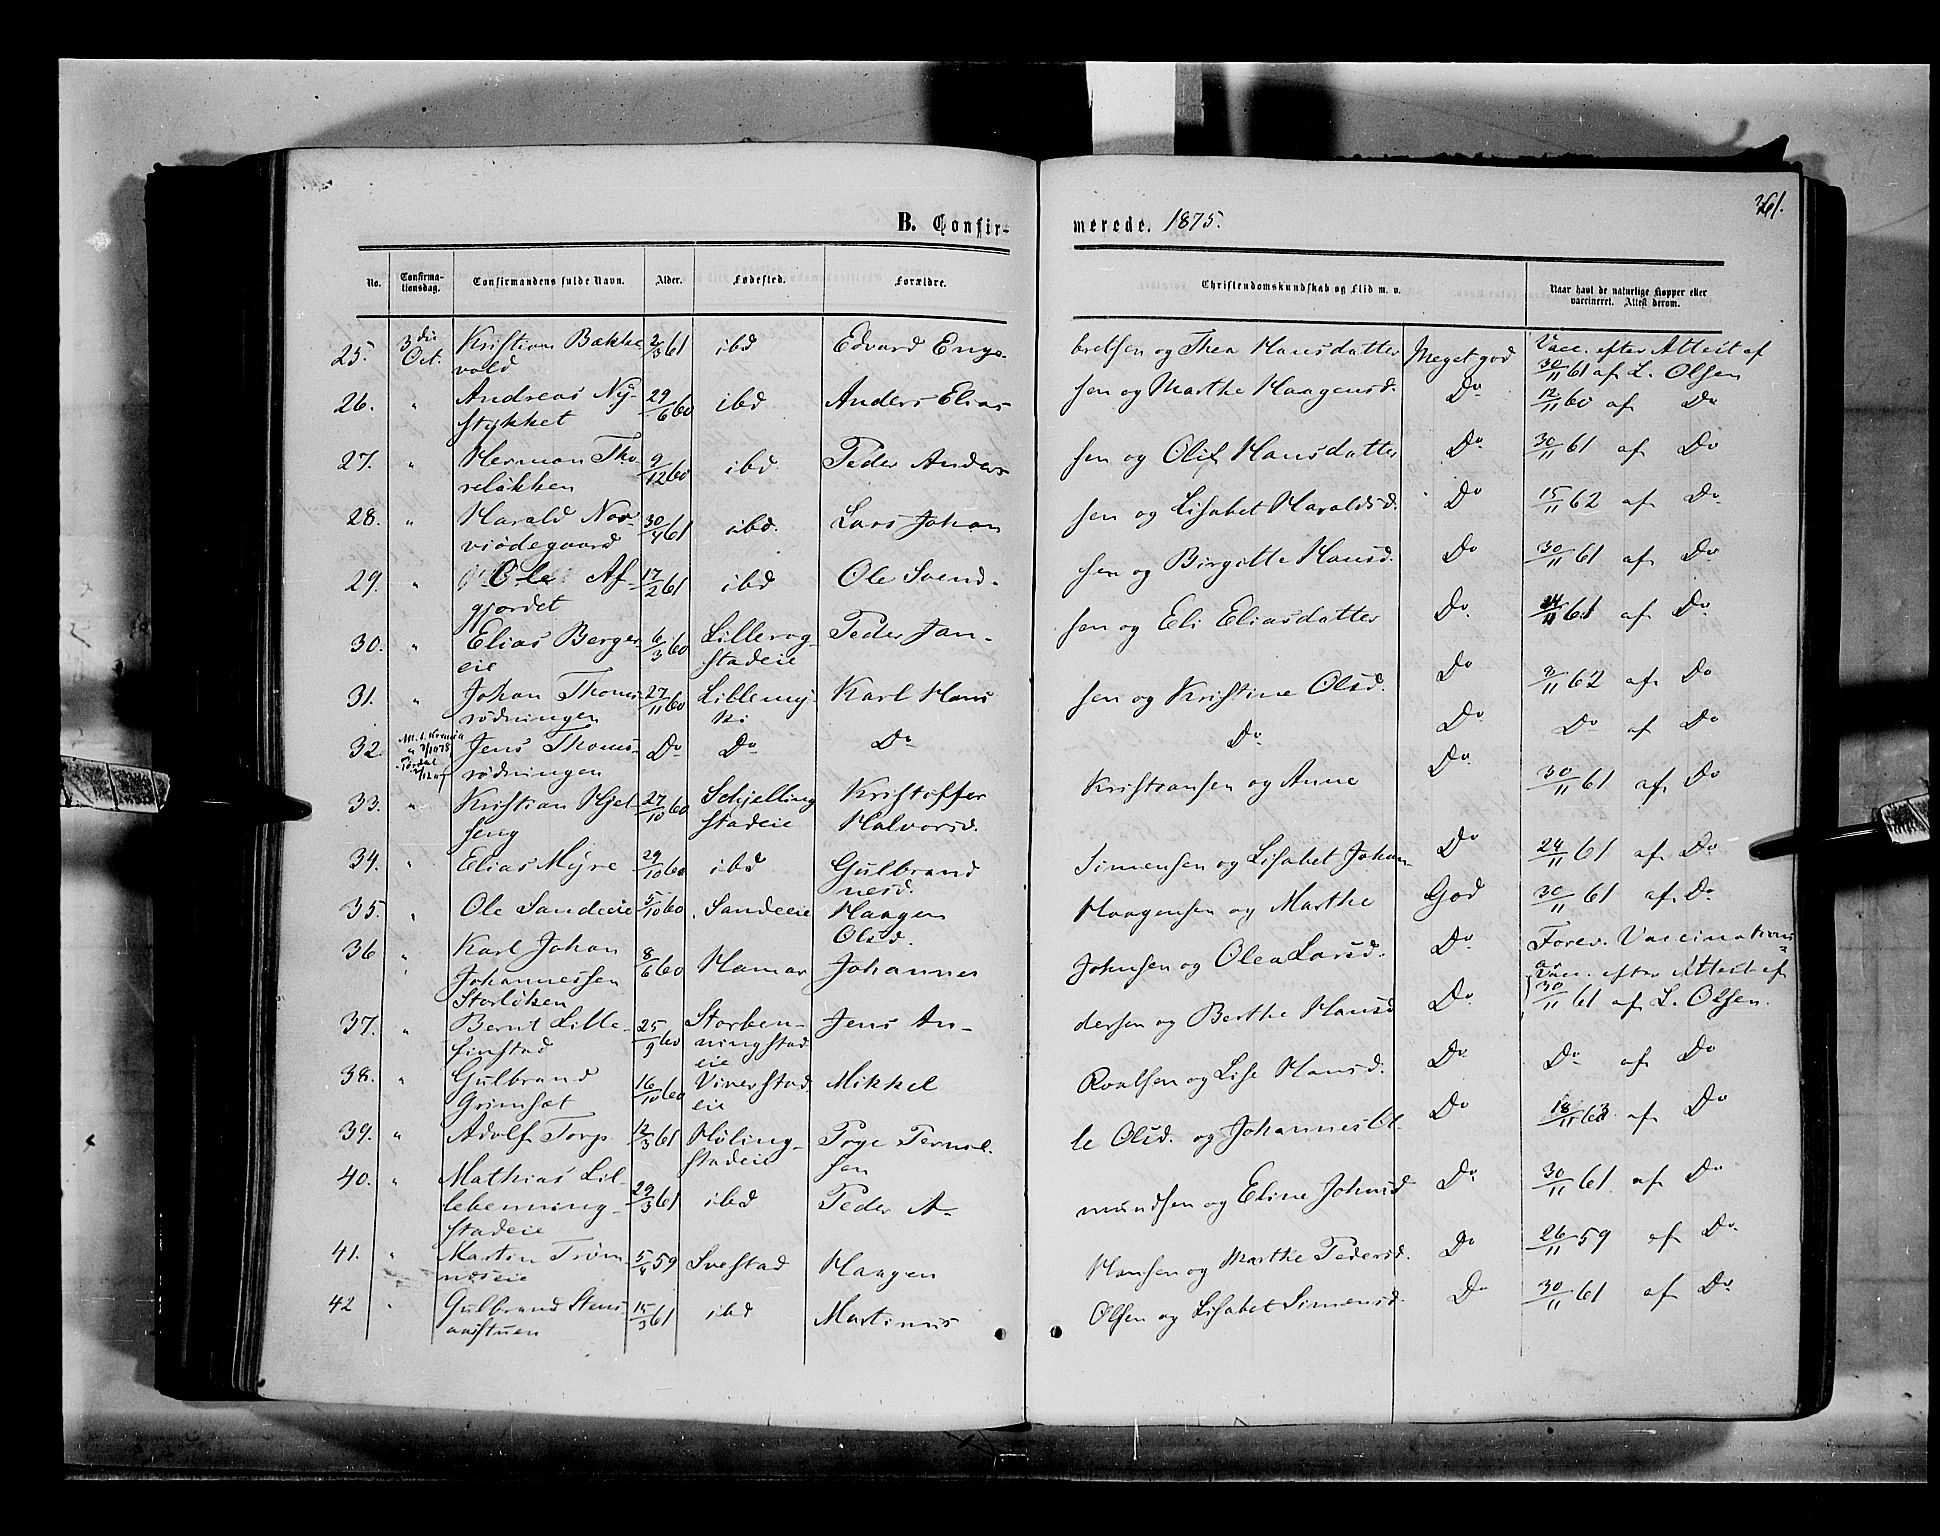 361.
B. Confir- merede. 1875.
No. Confirma-tionsdag. Confirmandens fulde Navn. Alder. Fødested. Forældre. Christendomskundskab og Flid m. v. Naar havt de naturlige Kopper eller vaccineret. Attest derom.
25. 3die Oct. Kristian Bakke 2/3 61 ibd Edvard Enge- bretsen og Thea Hansdatter Meget god Vacc. efter Attest af
vold 30/11 61 af L. Olsen
26. " Andreas Ny- 29/6 60 ibd Anders Elias- sen og Marthe Haagensd. Do 12/11 60 af Do
stykket
27. " Herman Tho- 9/12 60 ibd Peder Anders- sen og Hansdatter Do 30/11 61 af Do
reløkken
28. " Harald Nor- 30/4 61 ibd. Lars Johan- sen og Lisabet Haraldsd. Do 15/11 62 af Do
viødegaard
29. " Ole Af- 17/2 61 ibd Ole Svend- sen og Birgitte Hansd. Do 30/11 61 af Do
gjordet
30. " Elias Berger- 6/3 60 Lillerog- Peder Jan- sen og Eli Eliasdatter Do 61 af Do
eie stadeie
31. " Johan Thoms- 27/11 60 Lillemy- Karl Hans- sen og Kristine Olsd. Do 62 af Do
rødningen ki
32. Jens Thoms- Do Do Do Do Do Do af Do
rødningen
33. " Kristian Hjel- 27/10 60 Schjelling- Kristoffer Kristiansen og Anne Do 30/11 61 af Do
seng stadeie Halvorsd.
34. " Elias Myre 29/10 60 ibd Gulbrand Simensen og Lisabet Johan- Do 24/11 61 af Do
nesd.
35. " Ole Sandeeie 5/10 60 Sandeeie Haagen Haagensen og Marthe God 30/11 61 af Do
Olsd.
36 " Karl Johan 8/6 60 Hamar Johannes Johnsen og Olea Larsd. Do Forev. Vaccinations-
Johannessen
Storløken
37. " Bernt Lille- 25/9 60 Storben- Jens An- dersen og Berthe Hansd Do Vacc. efter Attest af
finstad ningstad- 30/11 61 af L. Olsen.
eie
38. " Gulbrand 16/10 60 Vinerstad Mikkel Roalsen og Lise Hansd. Do Do af Do
Grimsæt eie
39. " Adolf Torp 12/3 61 Høling- Poge Pernel- le Olsd. og Johannes Do 18/11 63 af Do
stadeie sen
40. " Mathias Lil- 29/3 61 ibd Peder A- mundsen og Eline Johnsd Do 30/11 61 af Do
lebenning-
stadeie
41. " Martin Trøm- 5/4 59 Svestad Haagen Hansen og Marthe Pedersd. Do 26/11 59 af Do
næseie
42 " Gulbrand Stens- 15/3 61 ibd Martinus Olsen og Lisabet Simensd. Do 30/11 61 af Do
aastuen